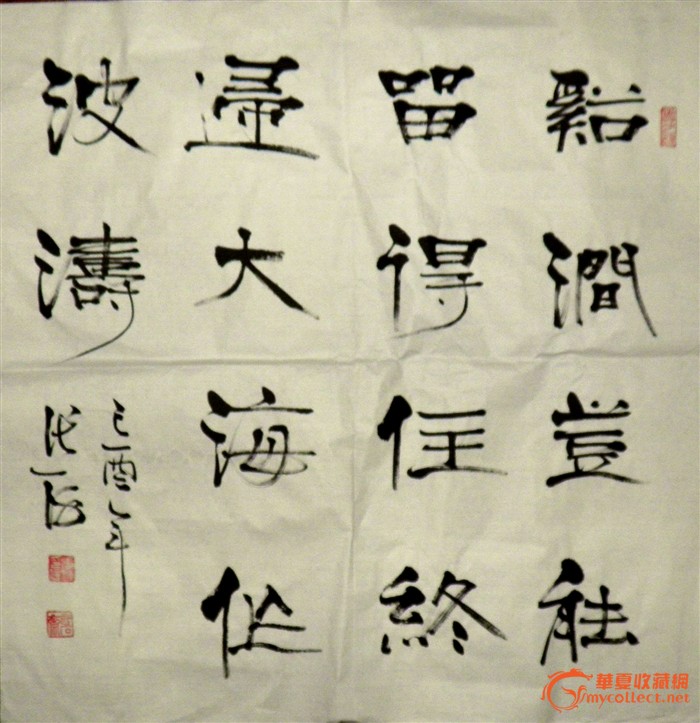 谿澗豈能
留得住終
歸大海作
波濤
己酉年
華夏收藏網
mycollect.net